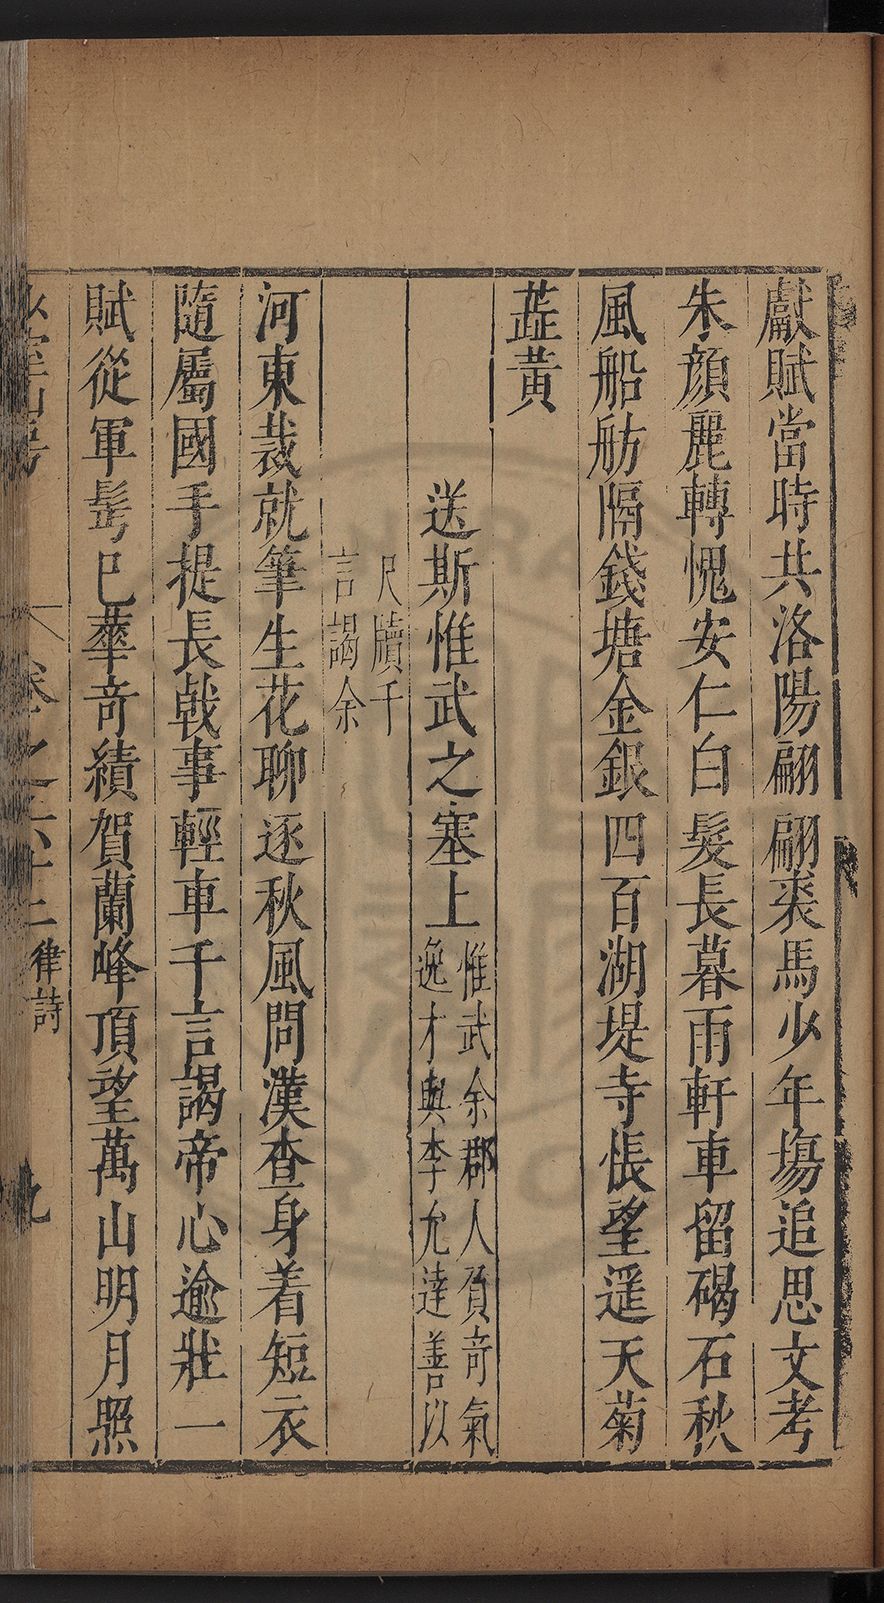 獻賦當時共洛陽翩翩裘馬少年塲追思文考
朱顔麗轉愧安仁白髮長暮雨軒車留碣石秋
風船舫隔錢塘金銀四百湖堤寺悵望遥天菊
蘂黄
送斯惟武之塞上
惟武余郡人負奇氣
逸才與李允達善以
尺牘千
言謁余
河東裁就筆生花聊逐秋風問漢查身着短衣
隨屬國手提長戟事輕車千言謁帝心逾壯一
賦從軍髩已華奇績賀蘭峰頂望萬山明月照
卷之六十二
律詩
九